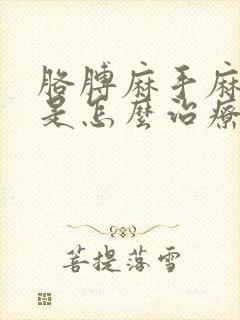 胳膊麻手麻
是怎麼治療
菩提落雪